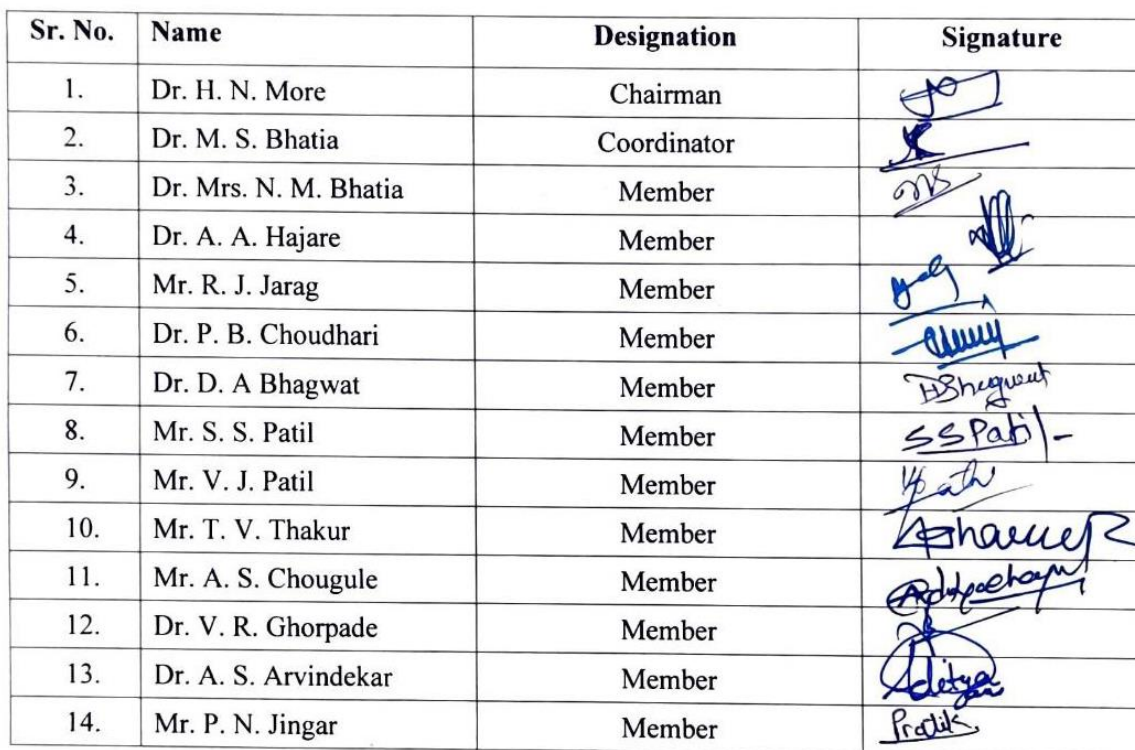 Sr. No. Name Designation Signature
1. Dr. H. N. More Chairman
2. Dr. M. S. Bhatia Coordinator
3. Dr. Mrs. N. M. Bhatia Member
4. Dr. A. A. Hajare Member
5. Mr. R. J. Jarag Member
6. Dr. P. B. Choudhari Member
7. Dr. D. A Bhagwat Member
8. Mr. S. S. Patil Member SSPatil
9. Mr. V. J. Patil Member
10. Mr. T. V. Thakur Member
11. Mr. A. S. Chougule Member
12. Dr. V. R. Ghorpade Member
13. Dr. A. S. Arvindekar Member Aditya
14. Mr. P. N. Jingar Member Pratik